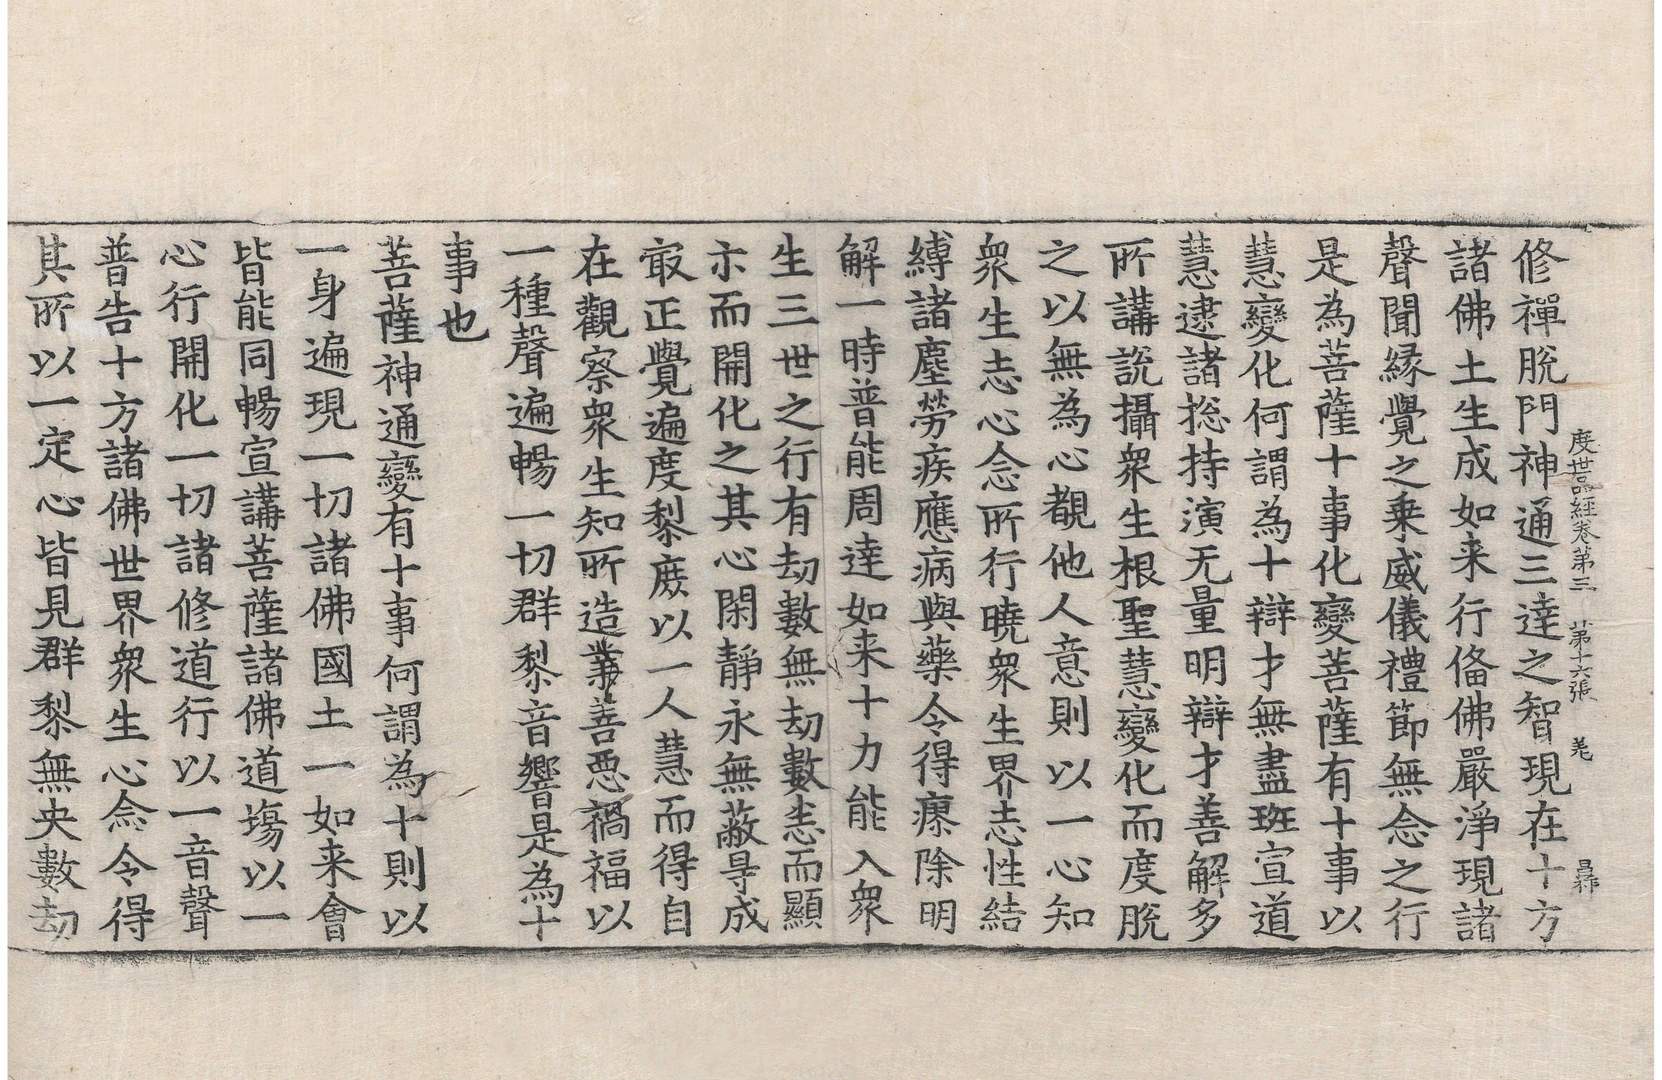 度世品經卷第三　第十六張　羌　昌稀
修禪脫門神通三達之智現在十方
諸佛土生成如来行俻佛嚴淨現諸
聲聞緣覺之乗威儀禮節無念之行
是為菩薩十事化變菩薩有十事以
慧變化何謂為十辯才無盡班宣道
慧逮諸揔持演无量明辯才善解多
所講說攝衆生根聖慧變化而度脫
之以無為心覩他人意則以一心知
衆生志心念所行曉衆生界志性結
縛諸塵勞疾應病與藥令得瘳除明
解一時普能周達如来十力能入衆
生三世之行有劫數無劫數悉而顯
示而開化之其心閑靜永無蔽㝵成
㝡正覺遍度黎庶以一人慧而得自
在觀察衆生知所造業善惡禍福以
一種聲遍暢一切群黎音響是為十
事也
菩薩神通變有十事何謂為十則以
一身遍現一切諸佛國土一如来會
皆能同暢宣講菩薩諸佛道塲以一
心行開化一切諸修道行以一音聲
普告十方諸佛世界衆生心念令得
其所以一定心皆見群黎無央數劫